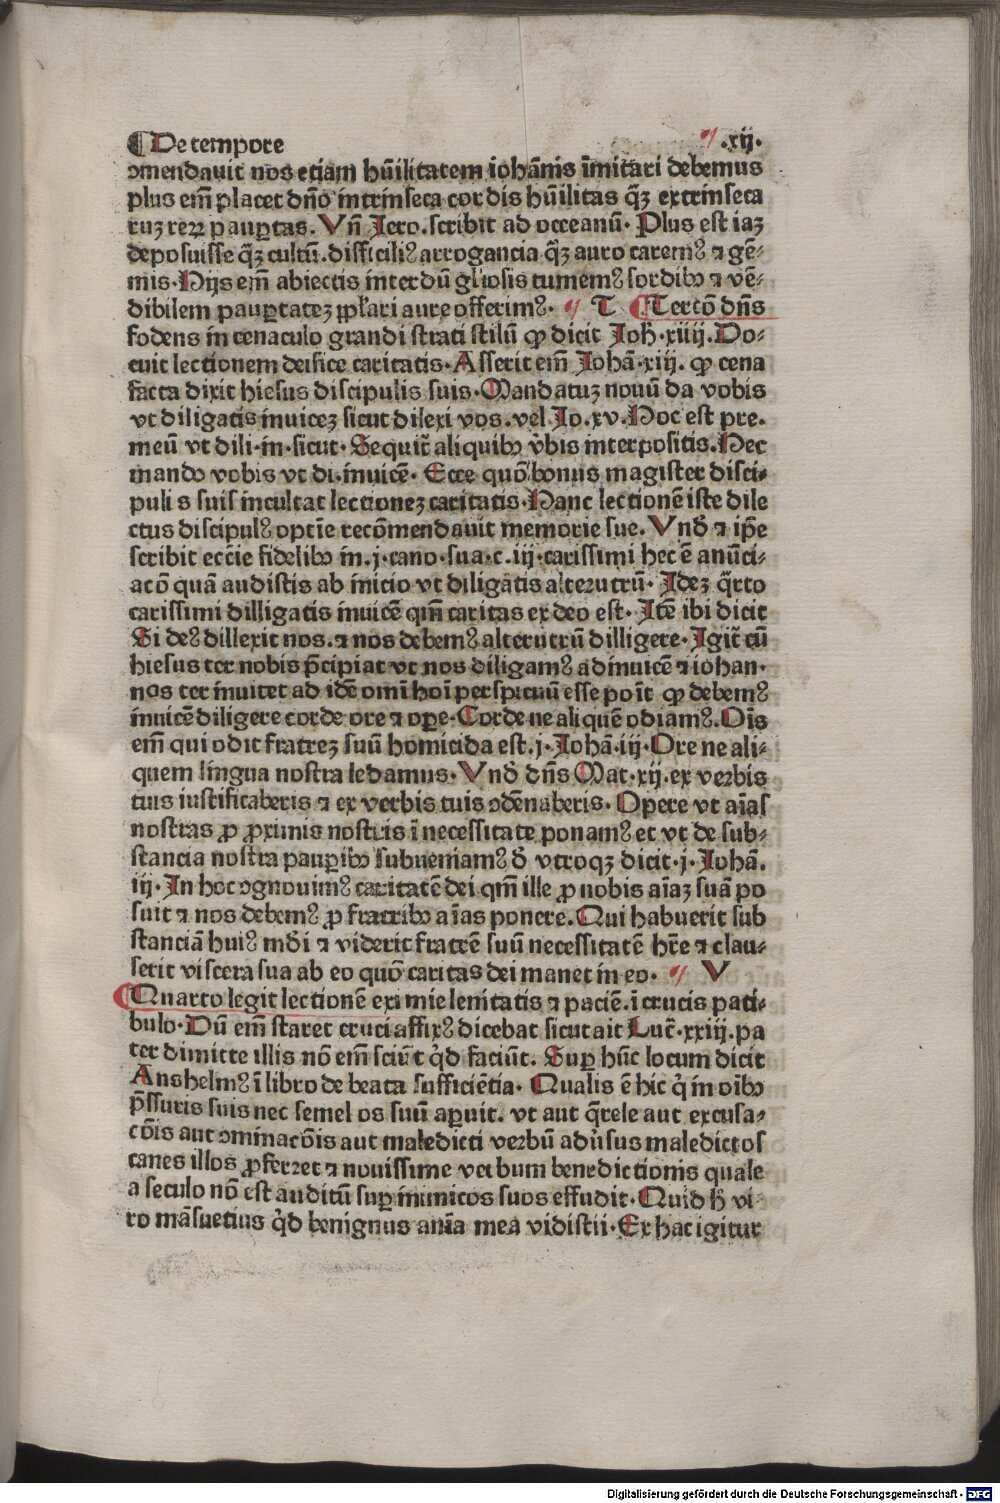 ¶ De tempore .xij.
ↄmendauit nos etiam hūilitatem iohānis īmitari debemus
plus em̄ placet dn̄o intrinseca cordis hūilitas qꝫ̄ extrinseca
ruꝫ reꝝ paup̲tas. Vn̄ Jero. scribit ad occeanū. Plus est iaꝫ
deposuisse qꝫ̄ cultū. difficiliꝰ arrogancia qꝫ̄ auro caremꝰ ⁊ gē⸗
mis. Hijs em̄ abiectis interdū gl̓iosis tumemꝰ sordibꝰ ⁊ vē⸗
dibilem paup̲tateꝫ ppl̓ari aure offerimꝰ. T ¶ Tercō dn̄s
fodens in cenaculo grandi strati stilū ꝙ dicit Joh̄. xiiij. Do⸗
cuit lectionem deifice caritatis. Asserit em̄ Johā. xiij. ꝙ cena
facta dixit hiesus discipulis suis. Mandatuꝫ nouū da vobis
vt diligatis inuiceꝫ sicut dilexi vos. vel Jo. xv. Hoc est pre.
meū vt dili. in. sicut. Sequit̄ aliquibꝰ v̓bis interpositis. Hec
mando vobis vt di. inuicē. Ecce quō bonus magister disci⸗
puli s suis incultat lectioneꝫ caritatis. Hanc lectionē iste dile
ctus discipulꝰ optīe recōmendauit memorie sue. Vnd̓ ⁊ ip̄e
scribit ecc̄ie fidelibꝰ in. j. cano. sua. c. iij. carissimi hec ē anūci⸗
acō quā audistis ab inicio vt diligatis alterutrū. Jdeꝫ q̄rto
carissimi dilligatis inuicē qm̄ caritas ex deo est. Jtē ibi dicit
Si deꝰ dillexit nos. ⁊ nos debemꝰ alterutrū dilligere. Jgit̄ cū
hiesus ter nobis p̄cipiat vt nos diligamꝰ adinuicē ⁊ iohan.
nos ter inuitet ad idē omī hoī perspicuū esse poīt ꝙ debemꝰ
inuicē diligere corde ore ⁊ op̲e. Corde ne aliquē odiamꝰ. Oīs
em̄ qui odit fratreꝫ suū homicida est. j. Johā. iij. Ore ne ali⸗
quem lingua nostra ledamus. Vnd̓ dn̄s Mat. xij. ex verbis
tuis iustificaberis ⁊ ex verbis tuis ↄdēnaberis. Opere vt aīas
nostras ꝓ ꝓximis nostris ī necessitate ponamꝰ et vt de sub⸗
stancia nostra paup̲ibꝰ subueniamꝰ d̓ vtroqꝫ dicit. j. Johā.
iij. Jn hoc ↄgnouimꝰ caritatē dei qm̄ ille ꝓ nobis aīaꝫ suā po
suit ⁊ nos debemꝰ ꝓ fratribꝰ aīas ponere. Qui habuerit sub
stanciā huiꝰ mūdi ⁊ viderit fratrē suū necessitatē hr̄e ⁊ clau⸗
serit viscera sua ab eo quō caritas dei manet in eo. V
¶ Quarto legit lectionē eximie lenitatis ⁊ paciē. ī crucis pati⸗
bulo. Dū em̄ staret cruci affixꝰ dicebat sicut ait Luc̄. xxiij. pa
ter dimitte illis nō em̄ sciūt q̓d faciūt. Sup̲ hūc locum dicit
Anshelmꝰ ī libro de beata sufficiētia. Qualis ē hic q̓ in oībꝰ
p̄ssuris suis nec semel os suū ap̲uit. vt aut q̄rele aut excusa⸗
cōis aut ↄminacōis aut maledicti verbū adu̓sus maledictos
canes illos ꝓferret ⁊ nouissime verbum benedictionis quale
a seculo nō est auditū sup̲ inimicos suos effudit. Quid h̓ vi⸗
ro māsuetius q̓d benignus anīa mea vidistii. Ex hac igitur
Digitalisierung gefördert durch die Deutsche Forschungsgemeinschaft - DFG